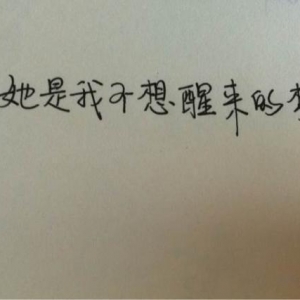 她是我不想醒来的